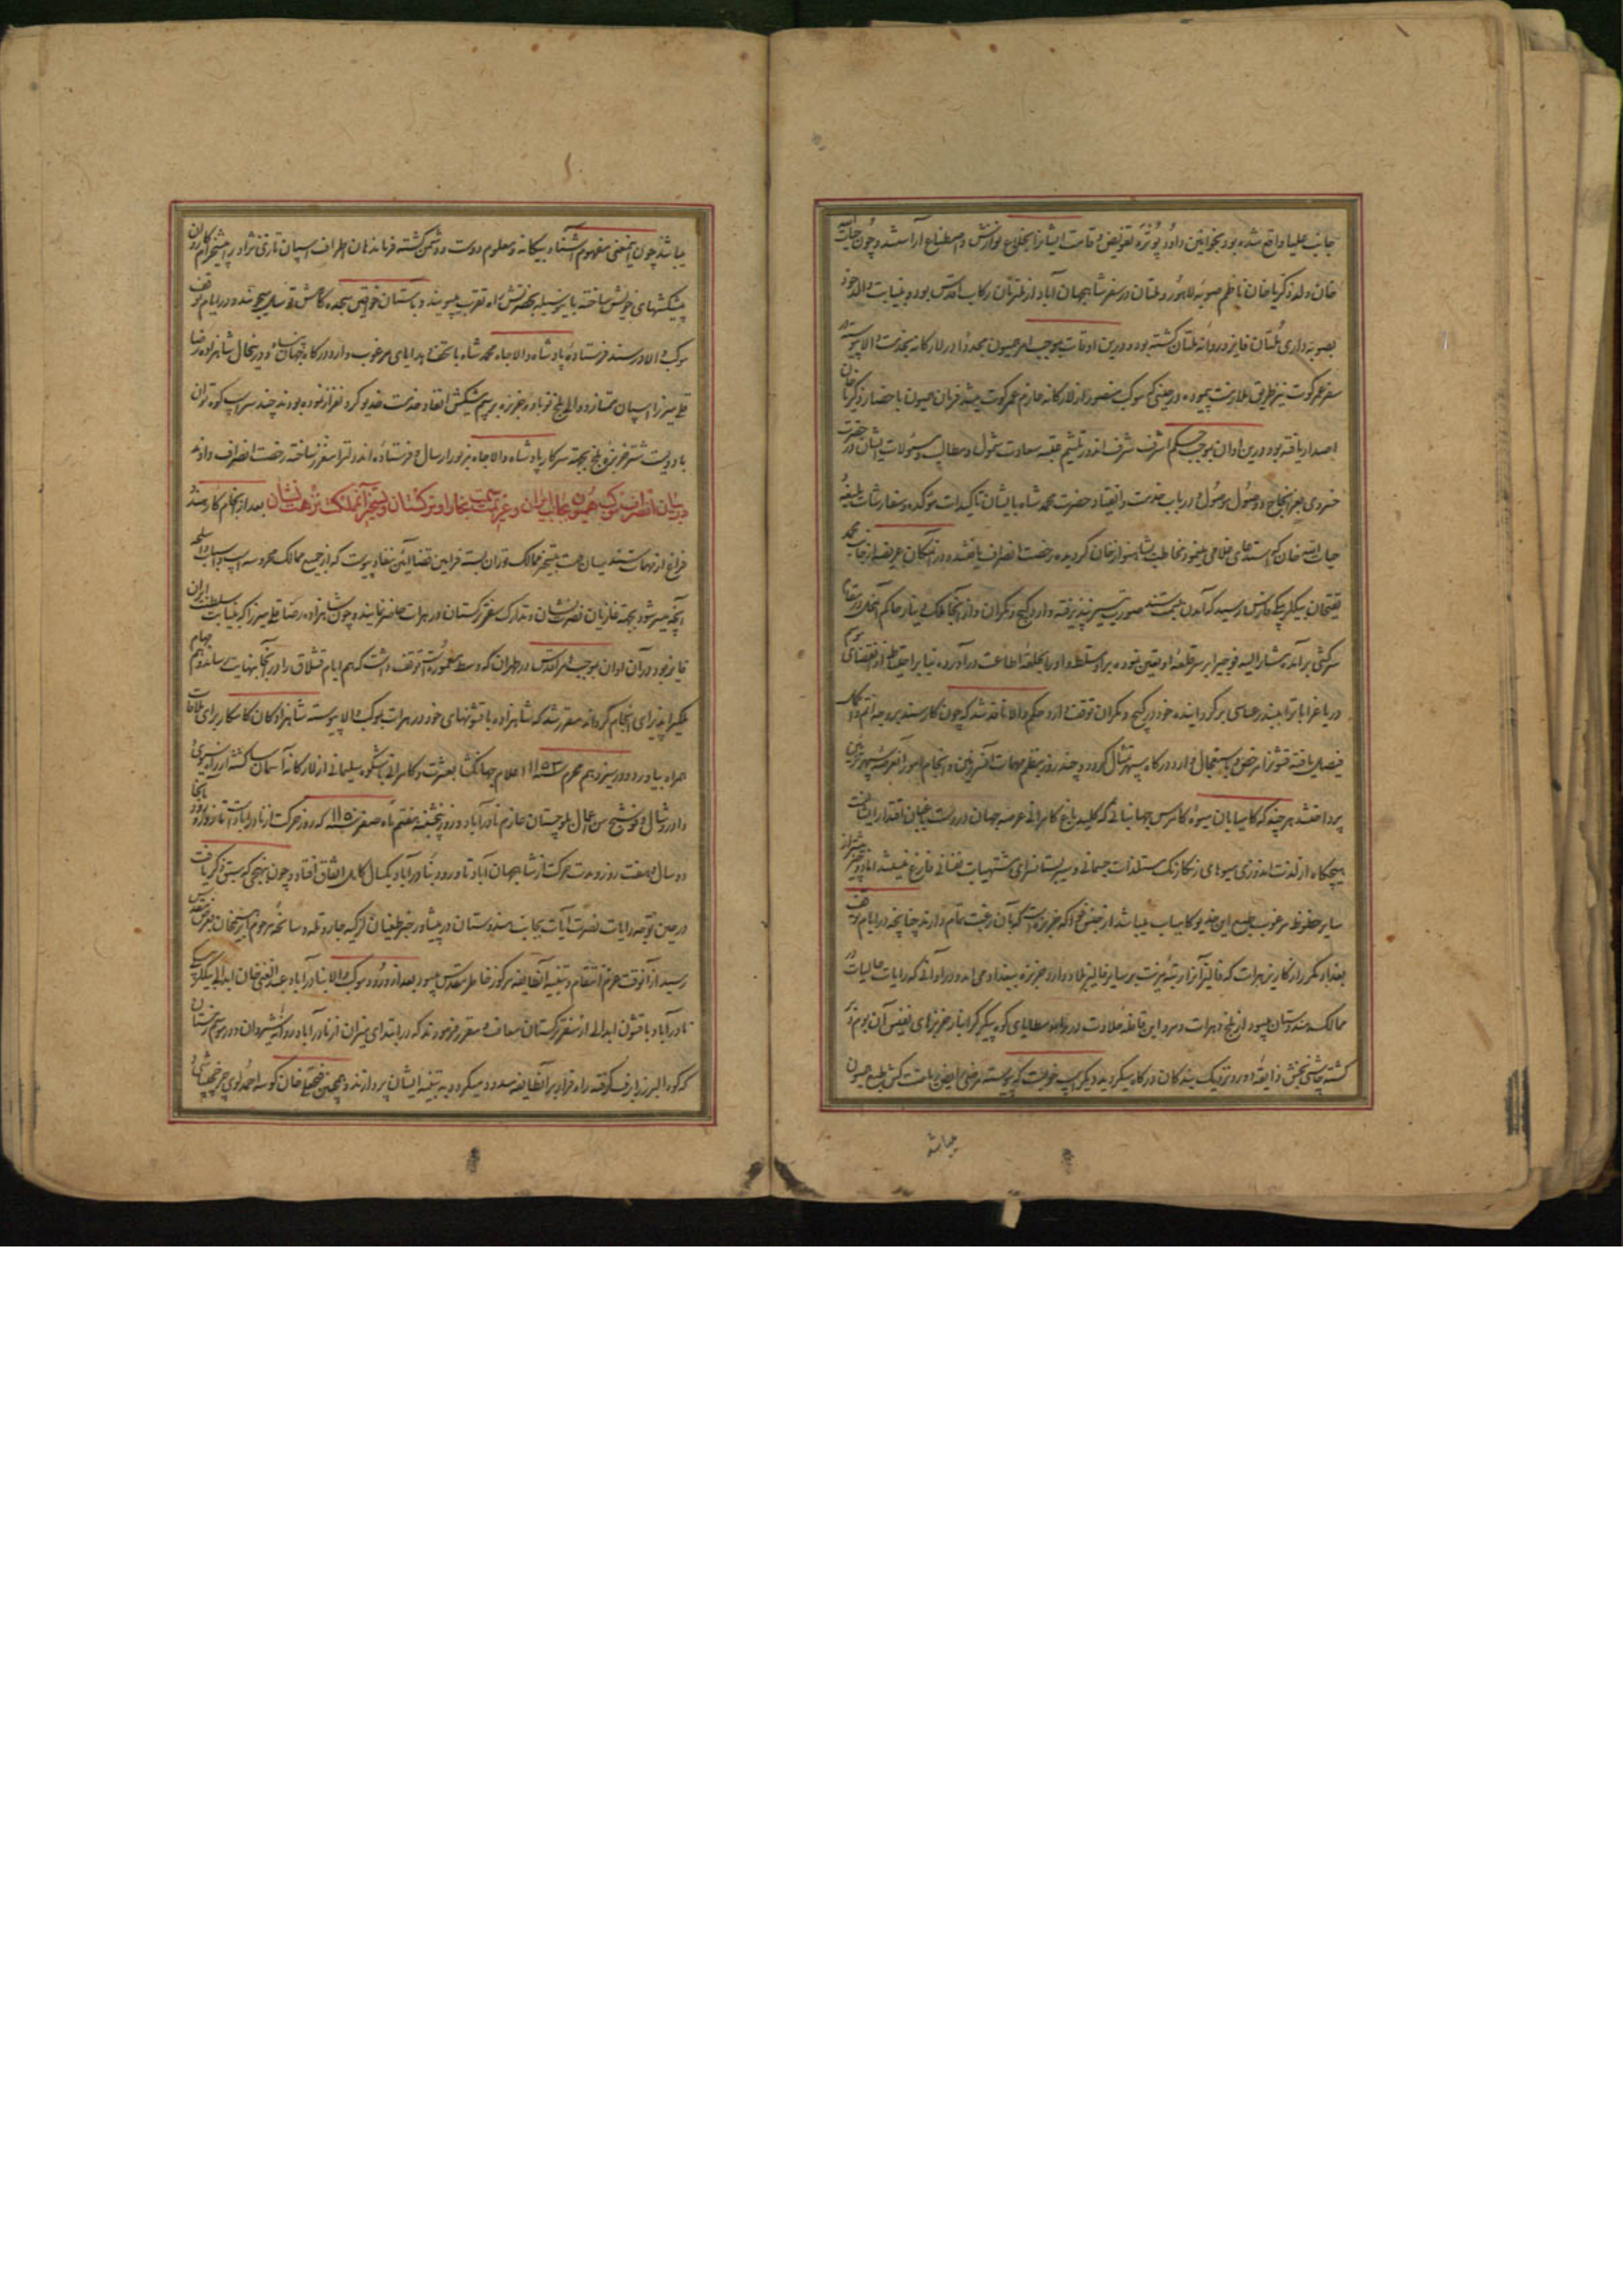 جانب علیا واقع شده بود بخوانین داود پوتره تفویض و قامت ایشانرا بخلاع نوازش و اصطناع آراستند و چون حیات الله
خان ولد زکریا خان ناظم صوبه لاهور و ملتان در سفر شاهجهان آباد از ملتزمان رکاب اقدس بود و بنیابت والد خود
بصوبه داری ملتان فایز و روانه ملتان گشته بود و درین اوقات بموجب امر همیون مجددا در لارکانه بخدمت والا پیوسته در
سفر عمرکوت نیز طریق ملازمت پیموده در حینی که موکب منصور از لارکانه عازم عمرکوت میشد فرمان همیون باحضار زکریا خان
اصدار یافته بود درین اوان بموجب حکم اشرف شرف اندوز تلثیم عتبه سعادت شمول و مطالب و مسئولات ایشان در حضرت
خسروی بعز انجاح و وصول موصول و در باب خدمت و انقیاد حضرت محمد شاه بایشان تاکیدات موکده و سفارشات بلیغه
حیات الله خان که استدعای غلامی مینمود مخاطب بشاهنواز خان گردیده رخصت انصراف یافتند و در آنمکان عریضه از جانب محمد
تقیخان بیگلربیگی فارس رسید که آمدن بسمت سند صورت تیسیر نپذیرفته وارد کیچ و مکران و از آنجا ملک دینار حاکم آنجا در مقام
سرکشی برآمده مشارالیه فوجی بر سر قلعه او تعیین نموده بر او مسلط و او را بحلقه اطاعت درآورده بنا بر احتیاط از نقصنای موسم
دریا غرابات را ببندر عباسی برگردانیده خود در کیچ و مکران توقف دارد حکم والا نافذ شد که چون کار سند بر وجه اتم و اکمل
فیصل یافته قشونرا مرخص و باستعجال وارد درگاه سپهر تمثال گردد و چند روز بنظم مهمات آفرین و انجام امور آنعرصه سپهر تزئین
پرداختند هرچند که کامیابان میوه کامرس جهانبانی که کلید باغ کامرانی عرصه جهان در دست باغبان اقتدار ایشانست
هیچگاه از لذت اندوزی میوهای رنگارنگ مستلذات جسمانی و سیر بستانسرای مشتهیات نفسانی فارغ نمیباشند اما آنچه بیشتر از
سایر حظوظ مرغوب طبع این خدیو کامیاب میباشد از جنس فواکه خربزه است که بآن رغبت تمام دارند چنانچه در ایام توقف
بغداد مکرر از کاریز هرات که فالیز آنرا رتبه مزیت بر سایر فالیز بلاد دارد خربزه ببغداد می آمد و در اوانی که رایات عالیات در
ممالک هندوستان میبود از بلخ و هرات و مرو این قافله حلاوت بر روی مطایای کوه پیکر گرانبار خربزهای نفیس آن بوم و بر
گشته چاشنی بخش ذایقه دور و نزدیک بندگان درگاه میگردید و دیگر اسب خوبست که پیوسته مرضی رایض ریاضت کش طبع همیون
میباشد
میباشد چون اینمعنی مفهوم آشنا و بیگانه و معلوم دوست و دشمن گشته فرماندهان اطراف اسپان تازی نژاد را پیشخرام کاروان
پیشکشهای خویش ساخته باین وسیله بحضرتش راه تقرب میپویند و باستان خواقین سجده گاهش توسل میجویند و در ایام توقف
موکب والا در سند فرستاده پادشاه والا جاه محمد شاه با تحف و هدایای مرغوب وارد درگاه جهان پناه و در همان حال شاهزاده رضا
قلی میرزا اسپان ممتاز و والی بلخ نوباوه خربزه برسم پیشکش انفاد خدمت خدیو گردن فراز نموده بودند چند سر اسب کوه توان
با دویست شتر خربزه بلخ بجهة سرکار پادشاه والا جاه مزبور ارسال و فرستاده اندولترا سفر ساخته رخصت انصراف دادند
در بیان انصراف موکب همیون بجانب ایران و عزیمت بسمت بخارا و ترکستان و تسخیر آنمملکت نزهت نشان بعد از انجام کار سند و
فراغ از مهمات سند یسان همت بتسخیر ممالک توران بسته فرامین قضا آئین بنفاد پیوست که از جمیع ممالک محروسه اسب و اسباب و اسلحه
آنچه میسر شود بجهة غازیان نصرت نشان و تدارک سفر ترکستان در هرات حاضر نمایند و چون شاهزاده رضا قلی میرزا که بنیابت سلطنت ایران
فایز بود در آن اوان بموجب امر اقدس در طهران که وسط معموره است توقف داشت که هم ایام قشلاق را در آنجا بنهایت رساند و هم مهام
ملکیرا پذیرای انجام گرداند مقرر شد که شاهزاده با قشونهای خود در هرات بموکب والا پیوسته شاهزادگان کامکار برای ملاقات
همراه بیاورد و در سیزدهم محرم سنه ۱۱۵۳ اعلام جهانگشا بعشرت و کامرانی باشکوه سلیمانی از لارکانه آسمان سا گشته از راه سیوی
و دادر و شال و فوشنج من اعمال بلوچستان عازم نادرآباد و روز پنجشنبه هفتم ماه صفر سنه ۱۱۵۰ که روز حرکت از نادرآباد است تا روز ورود بآنجا
دو سال و هفت روز و مدت حرکت از شاهجهان آباد تا ورود بنادرآباد یکسال کامل اتفاق افتاد و چون بنهجی که سبق ذکر یافت
در حین توجه رایات نصرت آیات بجانب هندوستان در پیشاور خبر طغیان لزگیه جار و تله و سانحه مرحوم ابراهیم خان بعرض اقدس
رسید از آنوقت عزم انتقام و تنبیه آنطایفه مرکوز خاطر مقدس میبود بعد از ورود موکب والا بنادرآباد عبدالغنی خان ابدالی بیگلربیگی
نادرآباد با قشون ابدالی از سفر ترکستان معاف و مقرر فرمودند که در ابتدای میزان از نادرآباد روانه شیروان و در موسم زمستان
که کوه البرز را برف گرفته راه فرار بر آنطایفه مسدود میگردد به تنبیه ایشان پردازند و همچنین فتحعلی خان کوسه احمدلوی چرخچی باشی